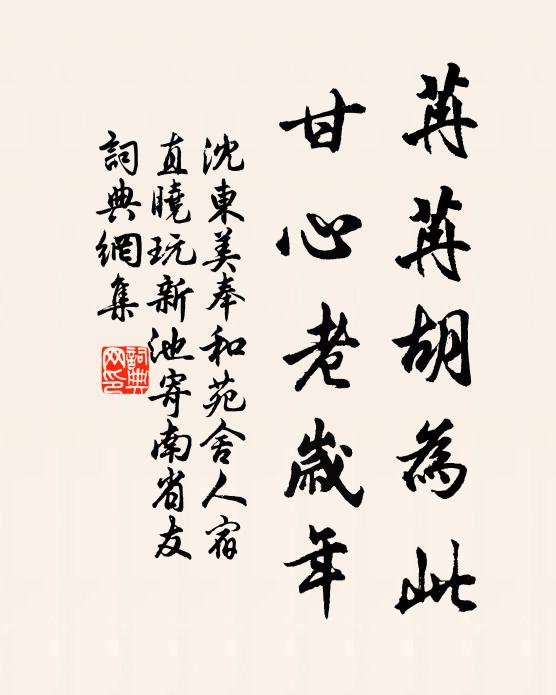 苒苒胡為此
甘心老歲年
沈東美奉和苑舍人宿
直曉玩新池寄南省友
詞典網集
詞典
网印